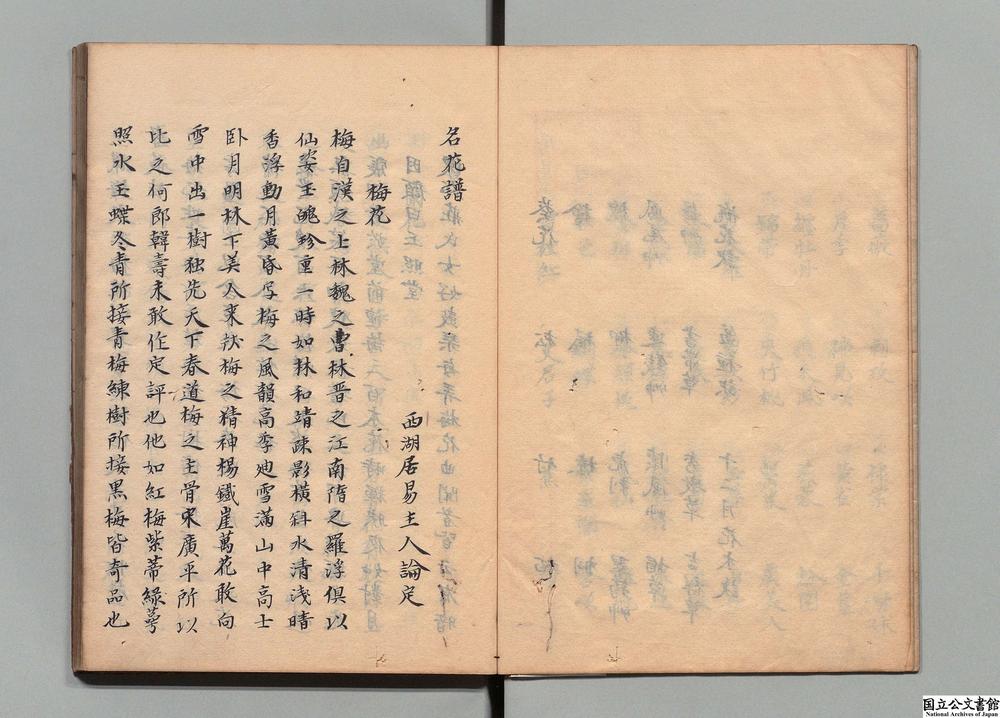 名花譜
西湖居易主人論定
梅花
梅自漢之上林魏之曹林晋之江南隋之羅浮俱以
仙姿玉魄珍重一時如林和靖疎影橫斜水清浅暗
香浮動月黃昏写梅之風韻高季迪雪滿山中高士
卧月明林下美人来状梅之精神楊鐵崖萬花敢向
雪中出一樹独先天下春道梅之主骨宋廣平所以
比之何郎韓壽未敢作定評也他如紅梅紫蒂綠萼
照水玉蝶冬青所接青梅練樹所接黒梅皆奇品也
国立公文書館
National Archives of Japan